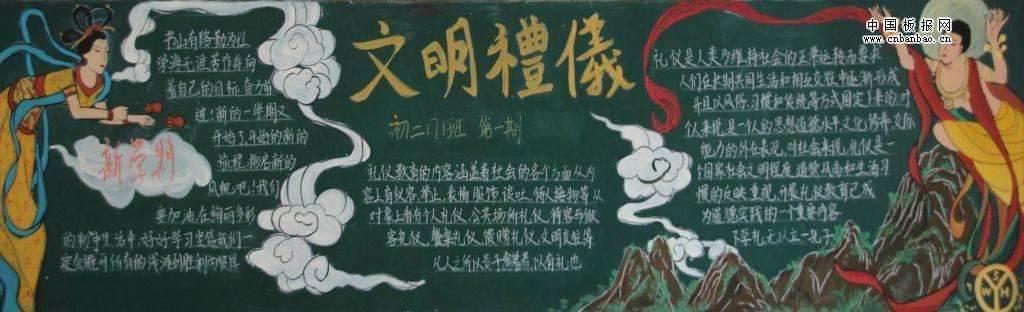 中国板报网
www.cnbanbao.cn
文明禮儀
初二(7)班 第一期
书山有路勤为径
学海无涯苦作舟向
着自己的目标奋力前
进!新的一学期又
开始了,开始的新的
旅程,扬起新的
风帆吧!我们
要加油,在绚丽多彩
的初中生活中,好好学习坚信我们一
定会避开所有的浅滩到胜利的彼岸
新学期
礼仪教育的内容涵盖着社会的各个方面从内
容上有仪容,举止,表情,服饰,谈吐,待人接物等从
对象上有个人礼仪,公共场所礼仪,待客与做
客礼仪,餐桌礼仪,馈赠礼仪,文明交往等
凡人之所以贵于禽兽者,以有礼也
礼仪是人类为维持社会的正常运转而要求
人们在长期共同生活和相互交往中逐渐形成
并且以风俗,习惯和传统等方式固定下来的对
个人来说,是一个人的思想道德水平,文化修养交际
能力的外在表现,对社会来说,礼仪是一
个国家社会文明程度,道德风尚和生活习
惯的反映,重视,开展礼仪教育已成
为道德实践的一个重要内容
不学礼,无以立—孔子